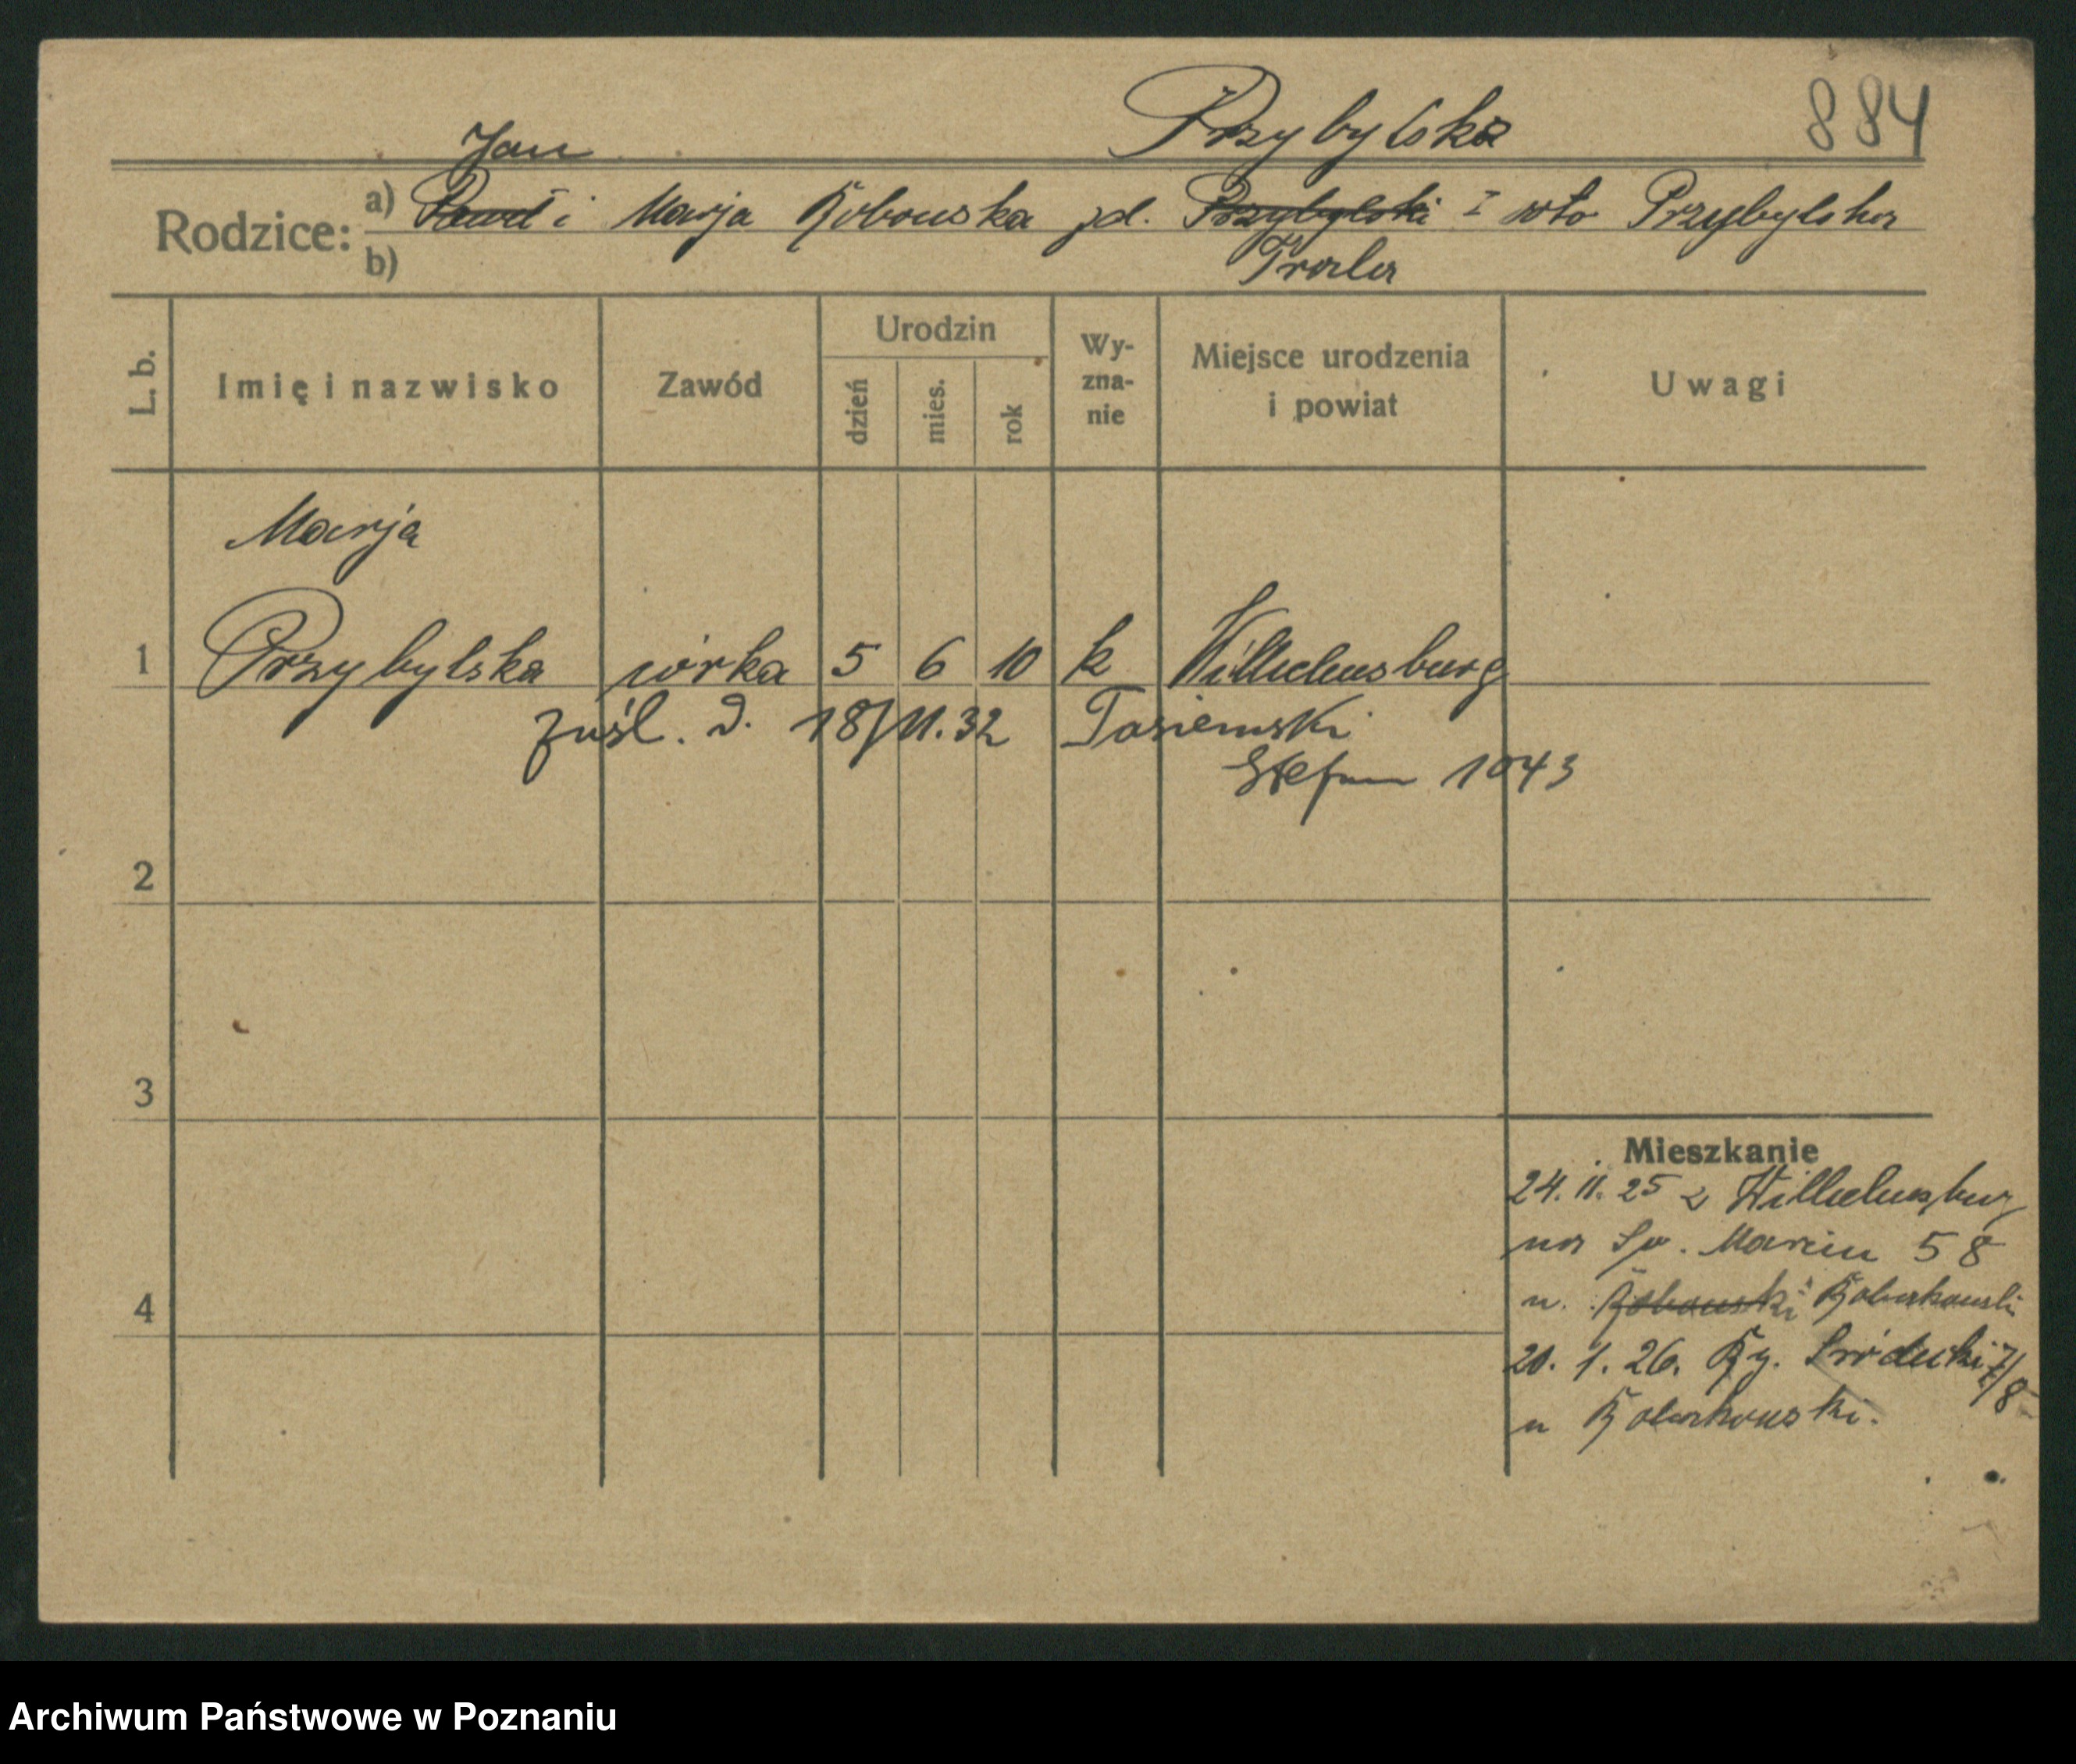 Przybylska 884
Jan
Rodzice: a) Paweł i Marja Robowska zd. Przybylski I voto Przybylska
b) Trala
L. b. Imię i nazwisko Zawód Urodzin dzień mies. rok Wy-zna-nie Miejsce urodzenia i powiat Uwagi
Marja
1 Przybylska córka 5 6 10 k Wilhelmsburg
zaśl. d. 18/11.32 Tasiemski
Stefan 1043
2
3
Mieszkanie
24. 11. 25 z Wilhelmsburg
na Św. Marcin 58
4 u.
20. 1. 26. Ry. Śródecki 7/8
u
Archiwum Państwowe w Poznaniu